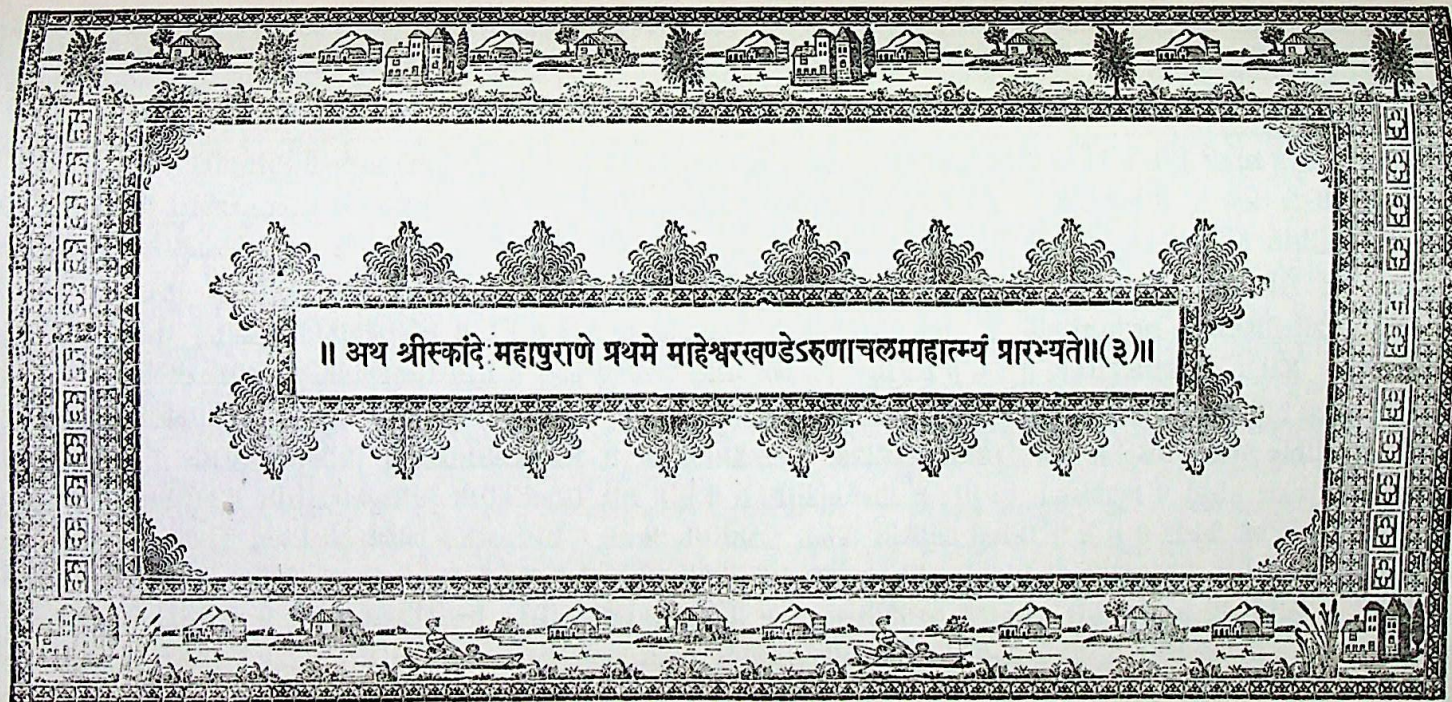 ॥ अथ श्रीस्कांदे महापुराणे प्रथमे माहेश्वरखण्डेऽरुणाचलमाहात्म्यं प्रारभ्यते॥(३)॥